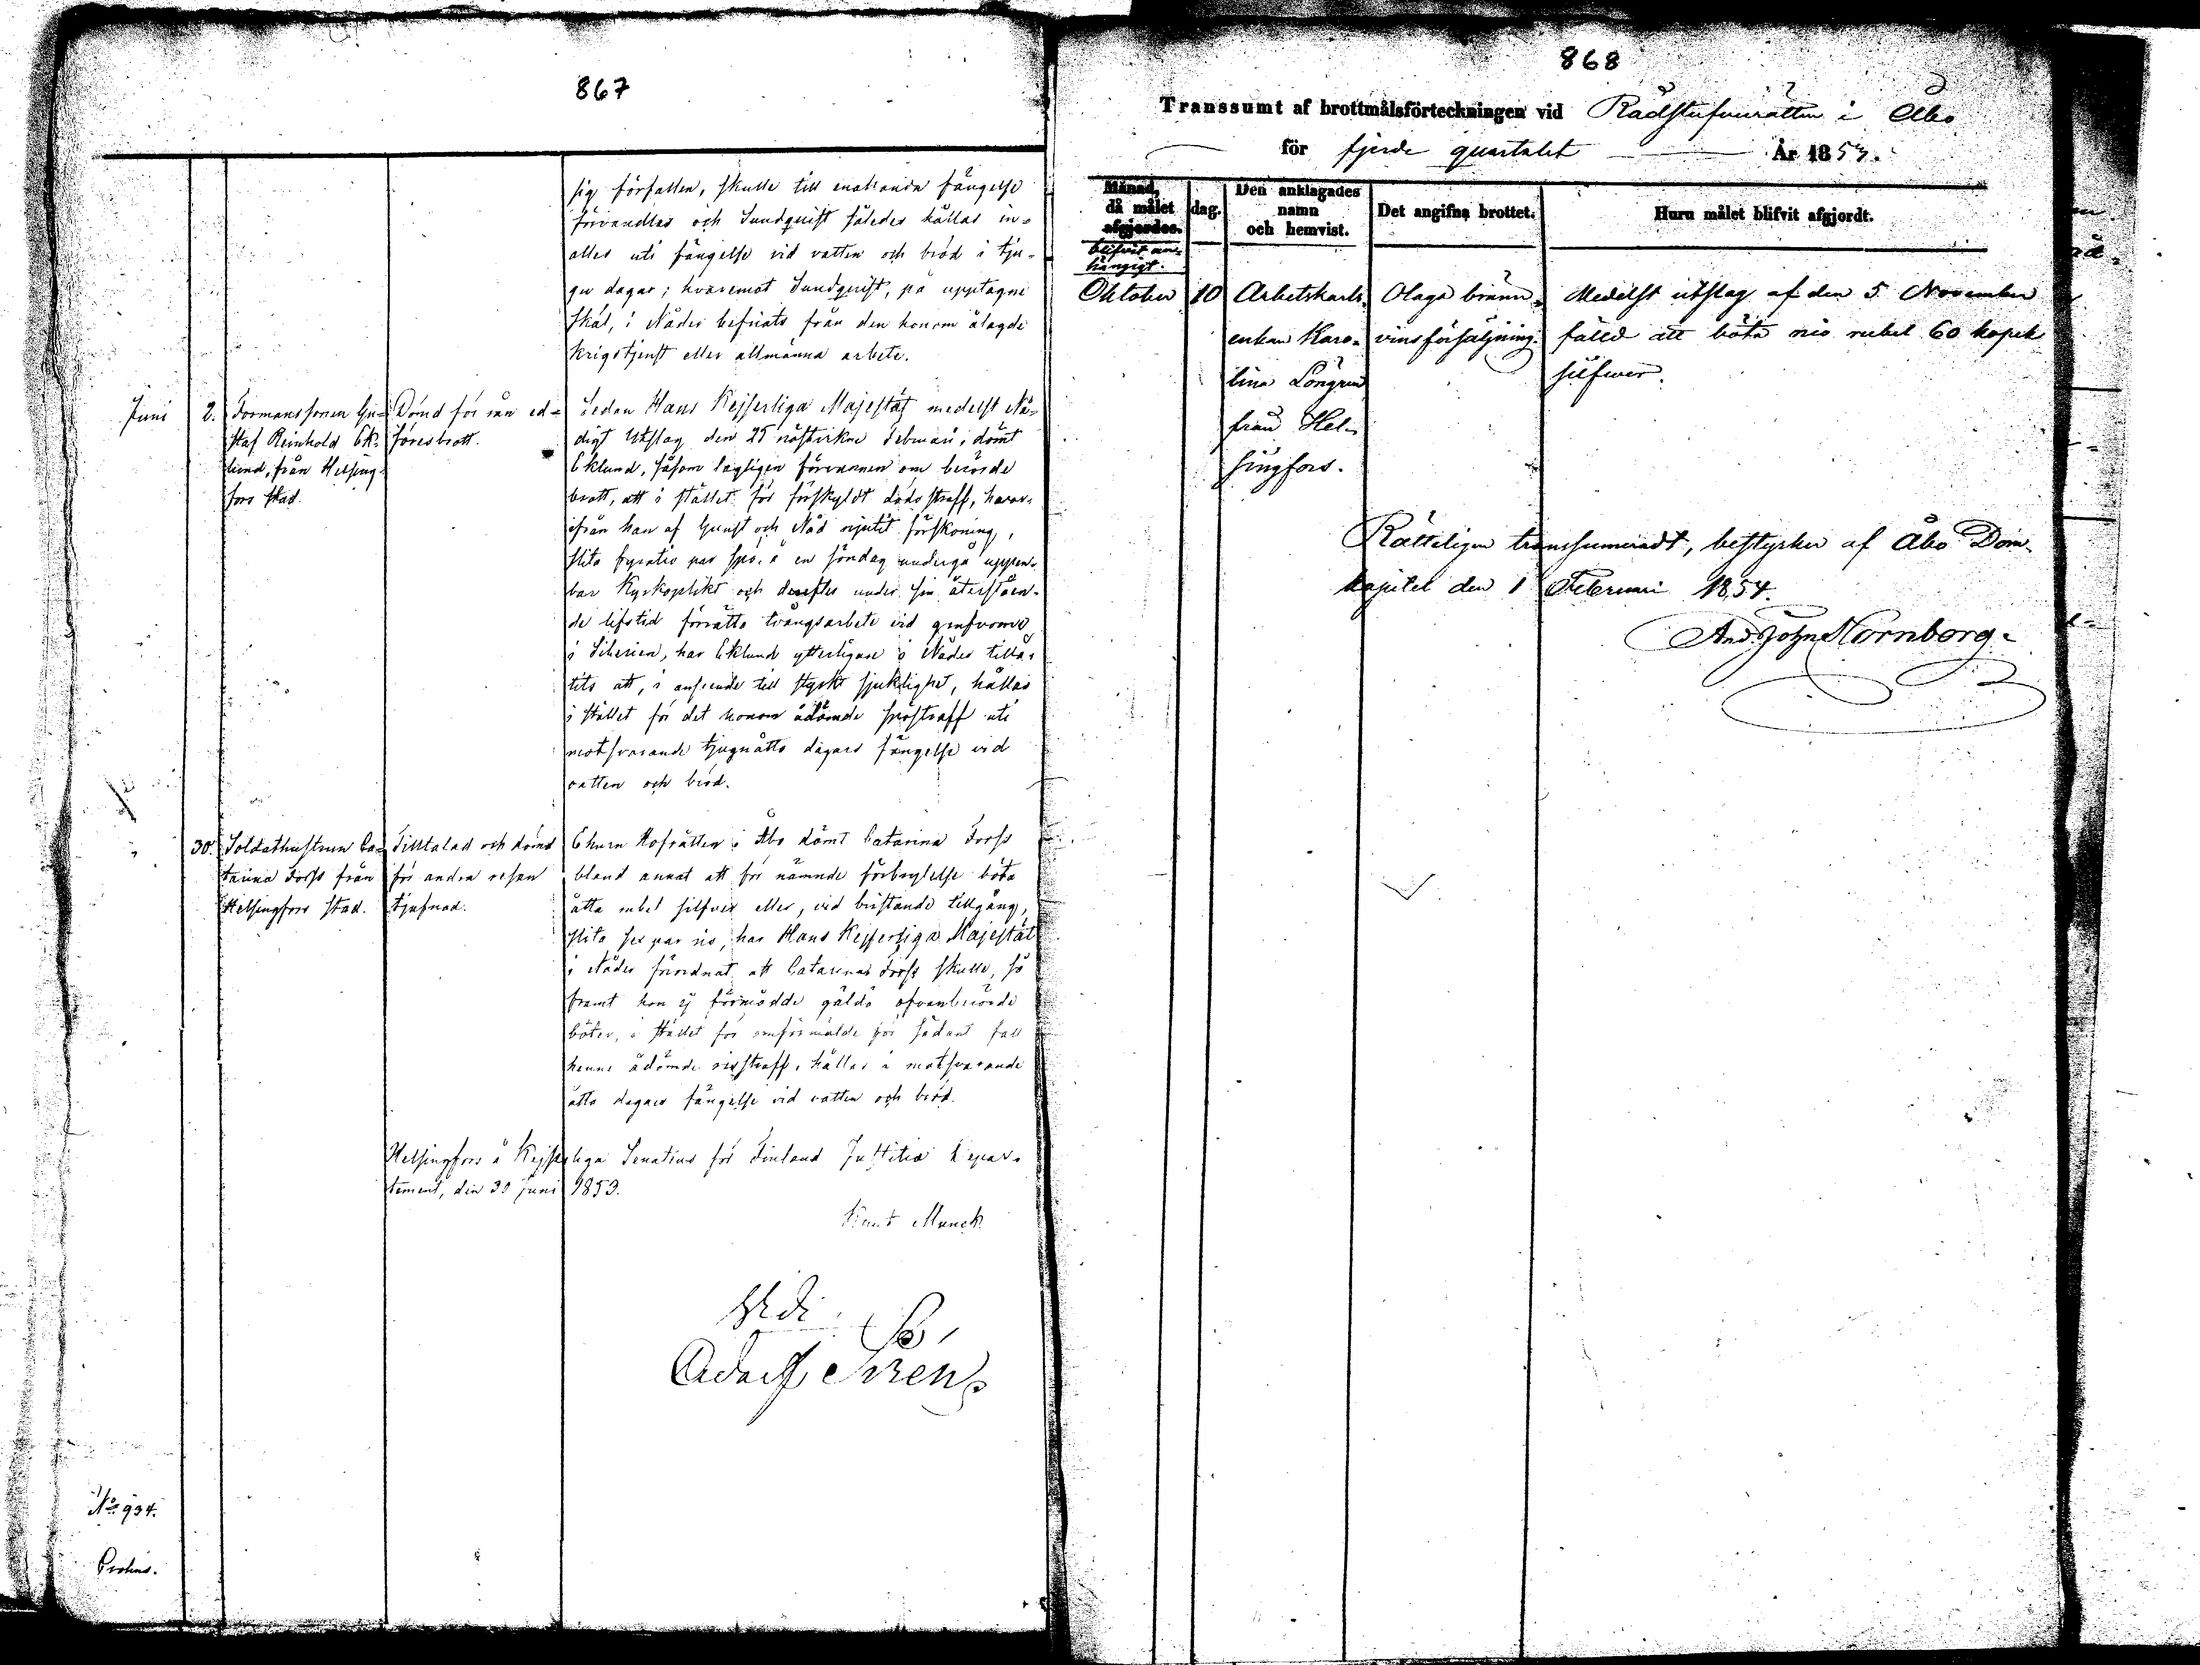 867
sig förfallen, skulle till enahanda fängelse
förvandlas och Sundqvist således hållas in-
alles uti fängelse vid vatten och bröd i tju-
gu dagar; hvaremot Sundqvist, på upptagne
skäl, i Nåder befriats från den honom ålagde
krigstjenst eller allmänna arbete.
Juni 2. Formanssonen Gu- Dömd för rån ed- Sedan Hans Kejserliga Majestät medelst Nå-
staf Reinhold Ek- söresbrott. digt Utslag den 25 nästvikne Februari, dömt
lund, från Helsing- Eklund, såsom lagligen förvunnen om berörde
fors stad. brott, att i stället för förskyldt dödsstraff, hvar-
ifrån han af Gunst och Nåd njutit förskoning,
slita fyratio par spö, å en söndag undergå uppen-
bar Kyrkoplikt och derefter under sin återståen-
de lifstid förrätta tvångsarbete vid grufvorne
i Siberien, har Eklund ytterligare i Nåder tillå-
tits att, i anseende till styrkt sjuklighet, hållas
i stället för det honom ådömde spöstraff uti
motsvarande tjuguåtta dagars fängelse vid
vatten och bröd.
30. Soldathustrun Ca- Tilltalad och dömd Ehuru Hofrätten i Åbo dömt Catarina Forss
tarina Forss från för andra resan bland annat att för nämnde förbrytelse böta
Helsingfors stad. tjufnad. åtta rubel silfver eller, vid bristande tillgång,
slita sex par ris, har Hans Kejserliga Majestät
i Nåder förordnat att Catarina Forss skulle, så
framt hon ej förmådde gälda ofvanberörde
böter, i stället för omförmälde för sådant fall
henne ådömde risstraff, hållas i motsvarande
åtta dagars fängelse vid vatten och bröd.
Helsingfors å Kejserliga Senatens för Finland Justitiæ Depar-
tement, den 30 Juni 1853.
Knut Munck
Vidi
Adolf
No 934.
868
Transsumt af brottmålsförteckningen vid Rådstufvurätten i Åbo
för fjerde quartalet År 1853.
Månad, då målet afgjordes. blifvit an- hängigt. dag. Den anklagades namn och hemvist. Det angifna brottet. Huru målet blifvit afgjordt.
Oktober 10 Arbetskarls- Olaga bränn- Medelst utslag af den 5 November
enkan Karo- vinsförsäljning. fälld att böta nio rubel 60 kopek
lina Löngren silfwer.
från Hel-
singfors.
Rätteligen transsumeradt, bestyrker af Åbo Dom-
kapitel den 1 Februari 1854.
And. John Hornborg.